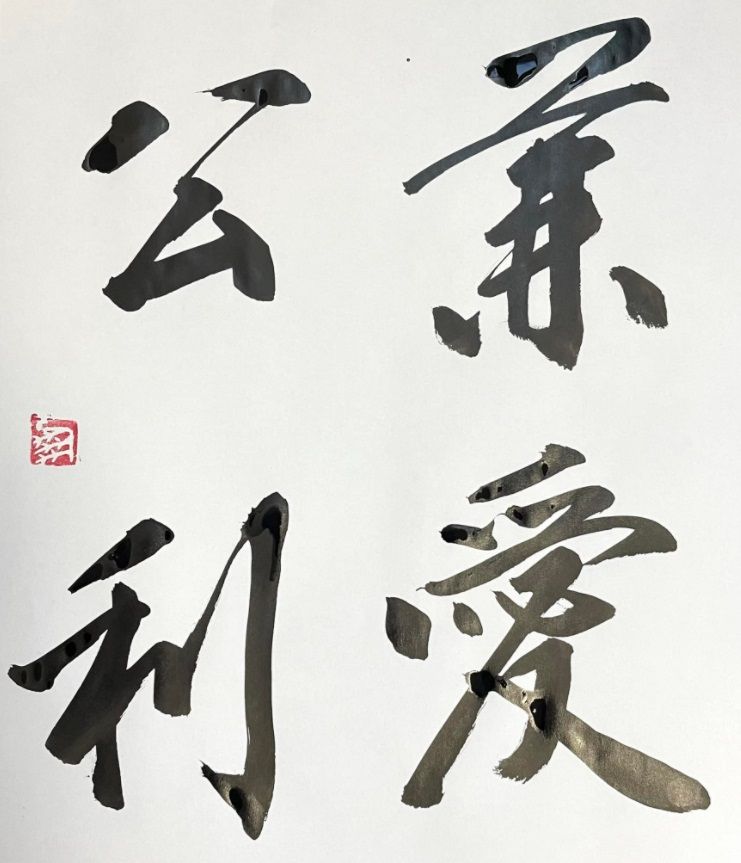 兼愛
公利